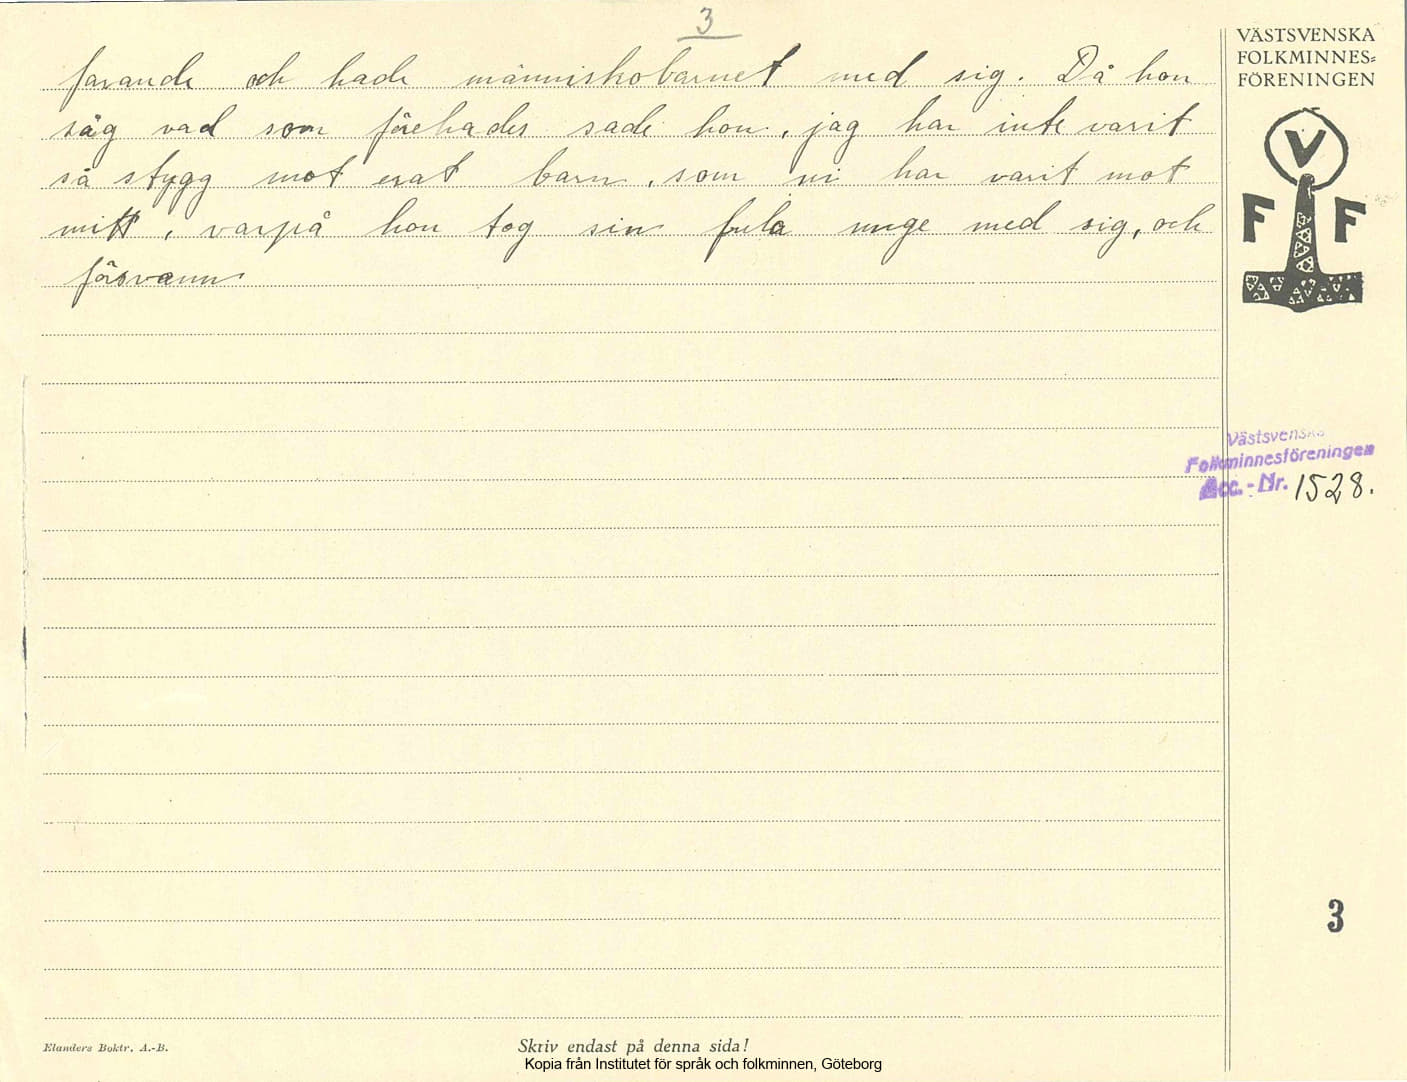 3
farande och hade människobarnet med sig. Då hon
såg vad som förehades sade hon, jag har inte varit
så stygg mot erat barn, som ni har varit mot
mitt, varpå hon tog sin fula unge med sig, och
försvann
VÄSTSVENSKA
FOLKMINNES=
FÖRENINGEN
V
F F
Västsvenska
Folkminnesföreningen
Acc.-Nr. 1528.
3
Elanders Boktr. A.-B.
Skriv endast på denna sida!
Kopia från Institutet för språk och folkminnen, Göteborg